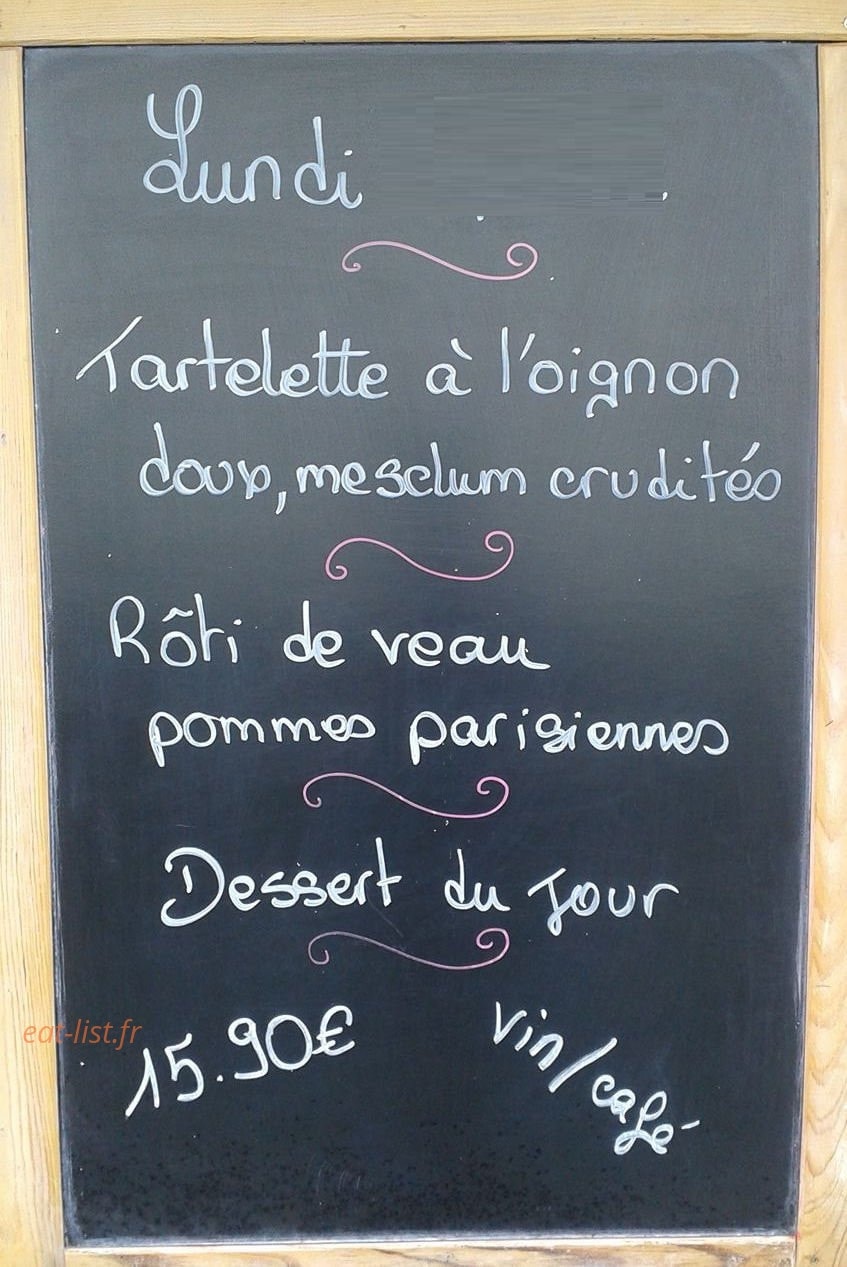 Lundi
Tartelette à l'oignon
doux, mesclum crudités
Rôti de veau
pommes parisiennes
Dessert du Jour
15.90€
vin/café
eat-list.fr